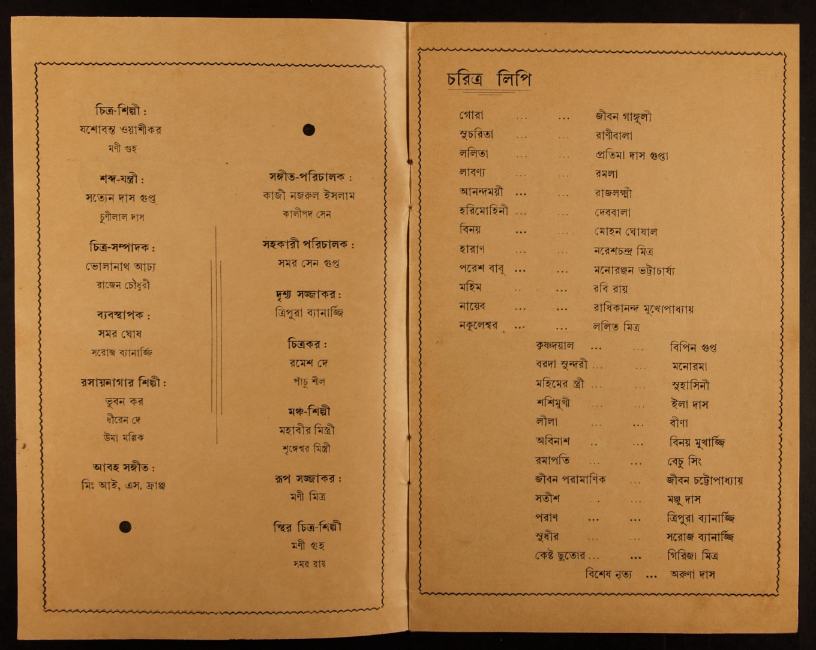 চিত্র-শিল্পী :
যশোবন্ত ওয়াশীকর
মণী গুহ
শব্দ-যন্ত্রী :
সত্যেন দাস গুপ্ত
চুণীলাল দাস
চিত্র-সম্পাদক :
ভোলানাথ আঢ্য
রাজেন চৌধুরী
ব্যবস্থাপক :
সমর ঘোষ
সরোজ ব্যানার্জ্জি
রসায়নাগার শিল্পী :
ভুবন কর
ধীরেন দে
উমা মল্লিক
আবহ সঙ্গীত :
মিঃ আই, এস, ফ্রাঞ্জ
সঙ্গীত-পরিচালক :
কাজী নজরুল ইসলাম
কালীপদ সেন
সহকারী পরিচালক :
সমর সেন গুপ্ত
দৃশ্য সজ্জাকর :
ত্রিপুরা ব্যানার্জ্জি
চিত্রকর :
রমেশ দে
পাঁচু শীল
মঞ্চ-শিল্পী
মহাবীর মিস্ত্রী
শৃঙ্গেশ্বর মিস্ত্রী
রূপ সজ্জাকর :
মণী মিত্র
স্থির চিত্র-শিল্পী
মণী গুহ
সমর রায়
চরিত্র লিপি
গোরা ... ... জীবন গাঙ্গুলী
সুচরিতা ... ... রাণীবালা
ললিতা ... ... প্রতিমা দাস গুপ্তা
লাবণ্য ... ... রমলা
আনন্দময়ী ... ... রাজলক্ষ্মী
হরিমোহিনী ... ... দেববালা
বিনয় ... ... মোহন ঘোষাল
হারাণ ... ... নরেশচন্দ্র মিত্র
পরেশ বাবু ... ... মনোরঞ্জন ভট্টাচার্য্য
মহিম .. ... রবি রায়
নায়েব ... ... রাধিকানন্দ মুখোপাধ্যায়
নকুলেশ্বর ... ... ললিত মিত্র
কৃষ্ণদয়াল ... ... বিপিন গুপ্ত
বরদা সুন্দরী ... ... মনোরমা
মহিমের স্ত্রী ... ... সুহাসিনী
শশিমুখী ... ... ইলা দাস
লীলা ... ... বীণা
অবিনাশ .. ... বিনয় মুখার্জ্জি
রমাপতি ... ... বেচু সিং
জীবন পরামাণিক ... জীবন চট্টোপাধ্যায়
সতীশ . ... মঞ্জু দাস
পরাণ ... ... ত্রিপুরা ব্যানার্জ্জি
সুধীর ... ... সরোজ ব্যানার্জ্জি
কেষ্ট ছুতোর ... ... গিরিজা মিত্র
বিশেষ নৃত্য ... অরুণা দাস